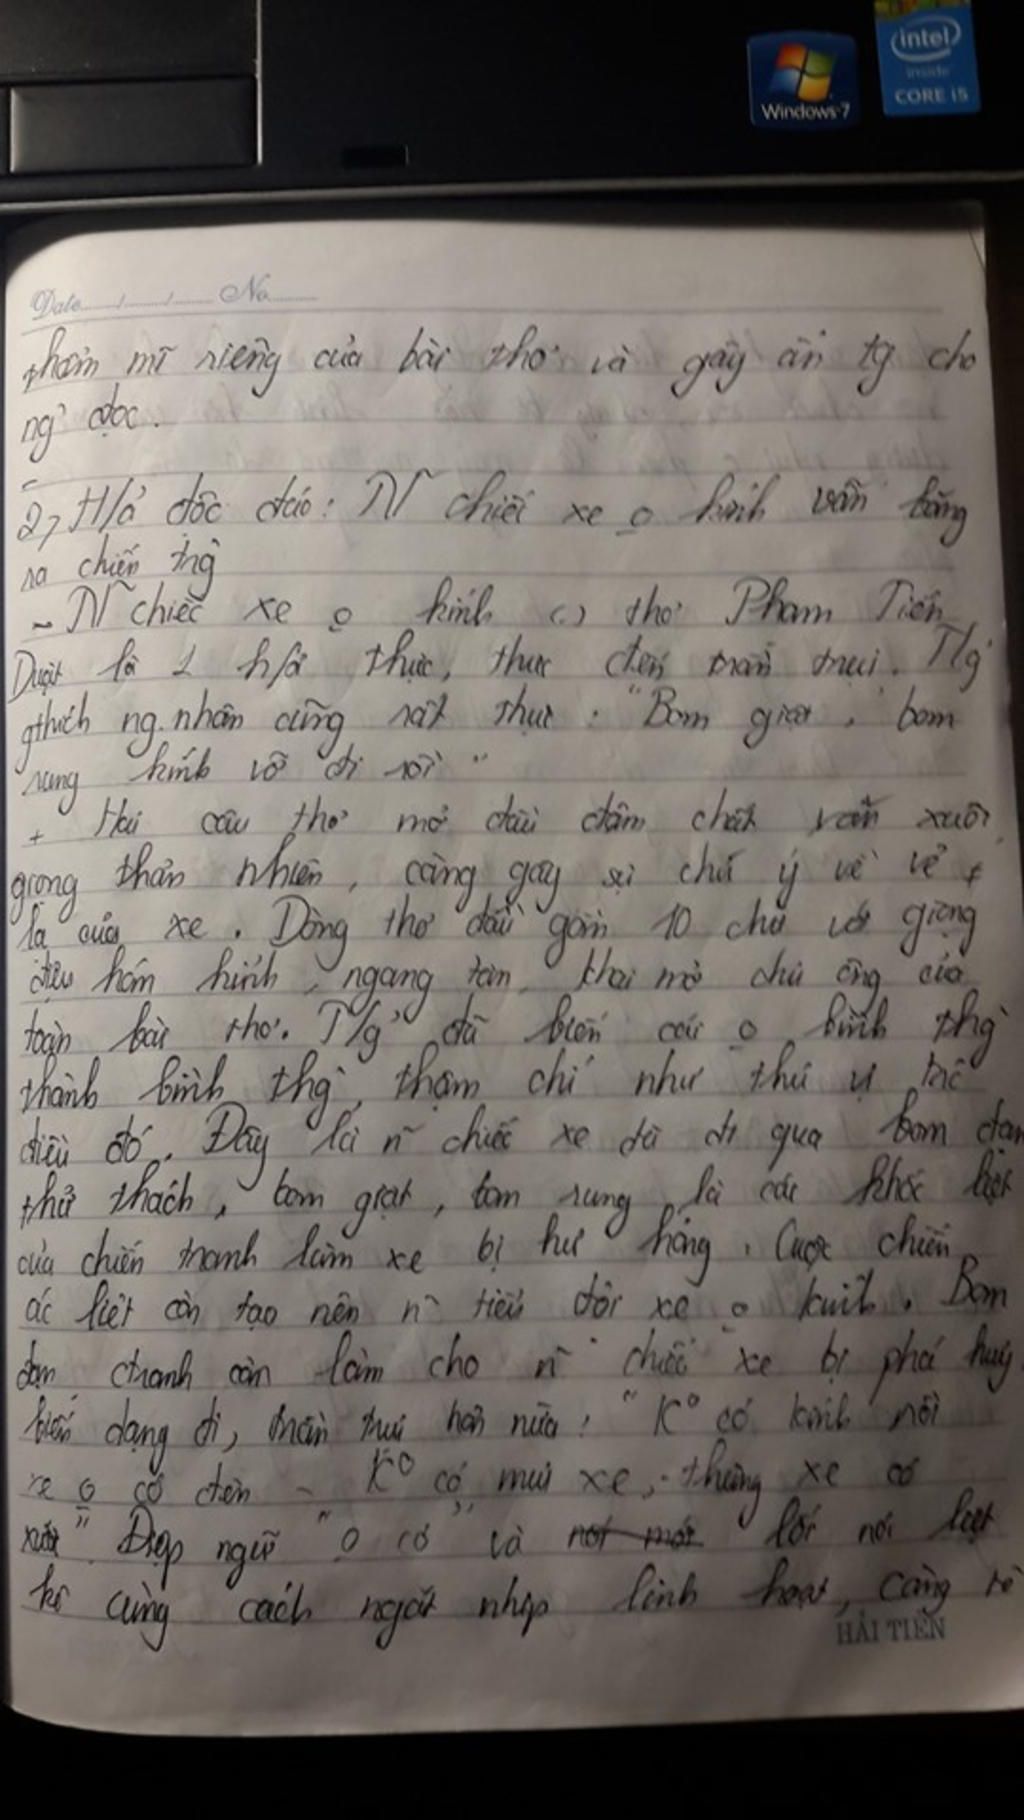 intel
inside
CORE i5
Windows 7
Date No
thẩm mĩ riêng của bài thơ và gây ấn tg cho
ng' đọc.
2, H/ả độc đáo: N~ chiếc xe o kính vẫn băng
ra chiến trg`
- N~ chiếc xe o kính () thơ Phạm Tiến
Duật là 1 h/ả thực, thực đến trần trụi. T/g'
gthích ng. nhân cũng rất thực: "Bom giật, bom
rung kính vỡ đi rồi"
+ Hai câu thơ mở đầu đậm chất văn xuôi,
giọng thản nhiên, càng gây sự chú ý về vẻ
lạ của xe. Dòng thơ đầu gồm 10 chữ với giọng
điệu hóm hỉnh, ngang tàn, khai mở chủ của
toàn bài thơ. T/g' đã biến cái o bình thg`
thành bình thg`, thậm chí như thú vị trc
điều đó. Đây là n~ chiếc xe đã đi qua bom đạn
thử thách, bom giật, bom rung là cái khốc liệt
của chiến tranh làm xe bị hư hỏng. Cuộc chiến
ác liệt còn tạo nên n~ tiểu đội xe o kính. Bom
đạn ctranh còn làm cho n~ chiếc xe bị phá huỷ
biến dạng đi, trần trụi hơn nữa: "K° có kính rồi
xe o có đèn - K° có mui xe, thùng xe có
xước" Điệp ngữ "o có" và lối nói liệt
kê cùng cách ngắt nhịp linh hoạt, càng
HẢI TIẾN